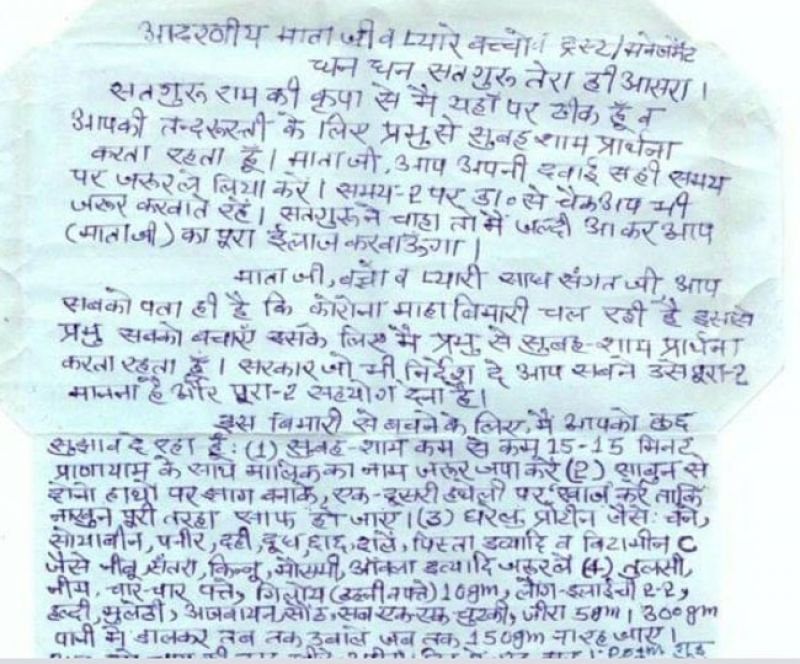 आदरणीय माता जी व प्यारे बच्चों व ट्रस्ट/मनेजमेंट
धन धन सतगुरु तेरा ही आसरा।
सतगुरु राम की कृपा से मैं यहाँ पर ठीक हूँ व
आपकी तन्दरूस्ती के लिए प्रभु से सुबह शाम प्रार्थना
करता रहता हूँ। माता जी, आप अपनी दवाई सही समय
पर जरूर ले लिया करें। समय-2 पर डा॰ से चैकअप भी
जरूर करवाते रहें। सतगुरु ने चाहा तो मैं जल्दी आ कर आप
(माता जी) का पूरा ईलाज करवाऊंगा।
माता जी, बच्चो व प्यारी साध संगत जी आप
सबको पता ही है कि कोरोना माहा बिमारी चल रही है इससे
प्रभु सबको बचाएँ इसके लिए मैं प्रभु से सुबह-शाम प्रार्थना
करता रहता हूँ। सरकार जो भी निर्देश दे आप सबने उसे पूरा-2
मानना है और पूरा-2 सहयोग देना है।
इस बिमारी से बचने के लिए, मैं आपको कुछ
सुझाव दे रहा हूँ: (1) सुबह-शाम कम से कम 15-15 मिनट
प्राणायाम के साथ मालिक का नाम जरूर जपा करें (2) साबुन से
दोनो हाथों पर झाग बनाके, एक-दूसरी हथेली पर खाज करें ताकि
नाखुन पूरी तरहा साफ हो जाएं। (3) घरेलू प्रोटीन जैसे: चने,
सोयाबीन, पनीर, दही, दूध, छाछ, पिस्ता इत्यादि व विटामीन C
जैसे नीबू, संतरा, किन्नू, मौसमी, आंवला इत्यादि जरूर लें (4) तुलसी,
नीम, चार-चार पत्ते, गिलोय 10gm, लौंग-इलाईची 2-2,
हल्दी, मुलठी, अजवायन, सौंठ, सब एक एक चुटकी, जीरा 5gm। 300gm
पानी में डालकर तब तक उबाले जब तक 150gm ना रह जाए।